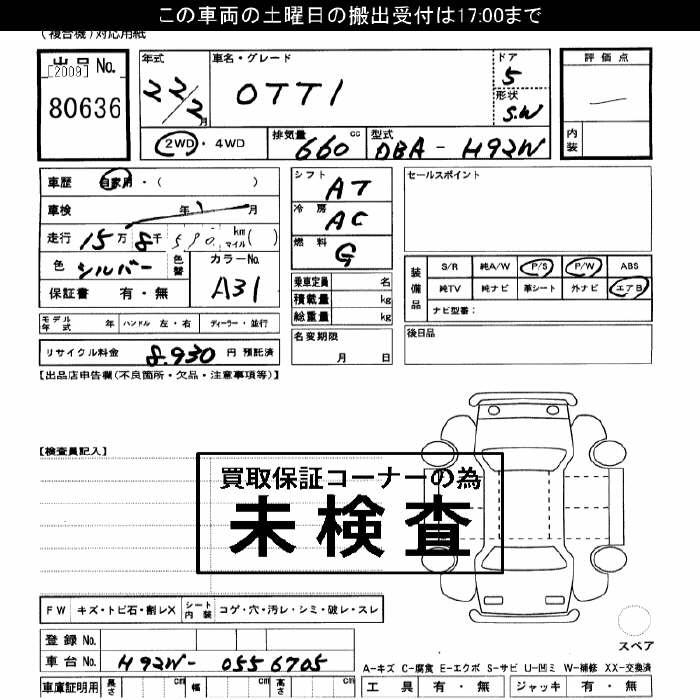 この車両の土曜日の搬出受付は17:00まで
(複合機)対応用紙
出品 No.
[2009]
80636
年式
22/2月
車名・グレード
OTTI
ドア
5
形状
S.W
評価点
内装
2WD・4WD
排気量
660 cc
型式
DBA - H92W
車歴 自家用・( )
車検 年 月
走行 15万 8千 590 km マイル( )
色 シルバー 色替
カラーNo.
A31
保証書 有・無
シフト
AT
冷房
AC
燃料
G
乗車定員 名
積載量 kg
総重量 kg
名変期限
月 日
セールスポイント
装備品
S/R 純A/W P/S P/W ABS
純TV 純ナビ 革シート 外ナビ エアB
ナビ型番:
後日品
モデル年式 年 ハンドル 左・右 ディーラー・並行
リサイクル料金 8.930 円 預託済
【出品店申告欄(不良箇所・欠品・注意事項等)】
【検査員記入】
買取保証コーナーの為
未検査
FW キズ・トビ石・割レX シート内装 コゲ・穴・汚レ・シミ・破レ・スレ
登録 No.
車台 No. H92W- 0556705
車庫証明用 長さ cm 幅 cm 高さ cm
スペア
A-キズ C-腐食 E-エクボ S-サビ U-凹ミ W-補修 XX-交換済
工具 有・無 ジャッキ 有・無